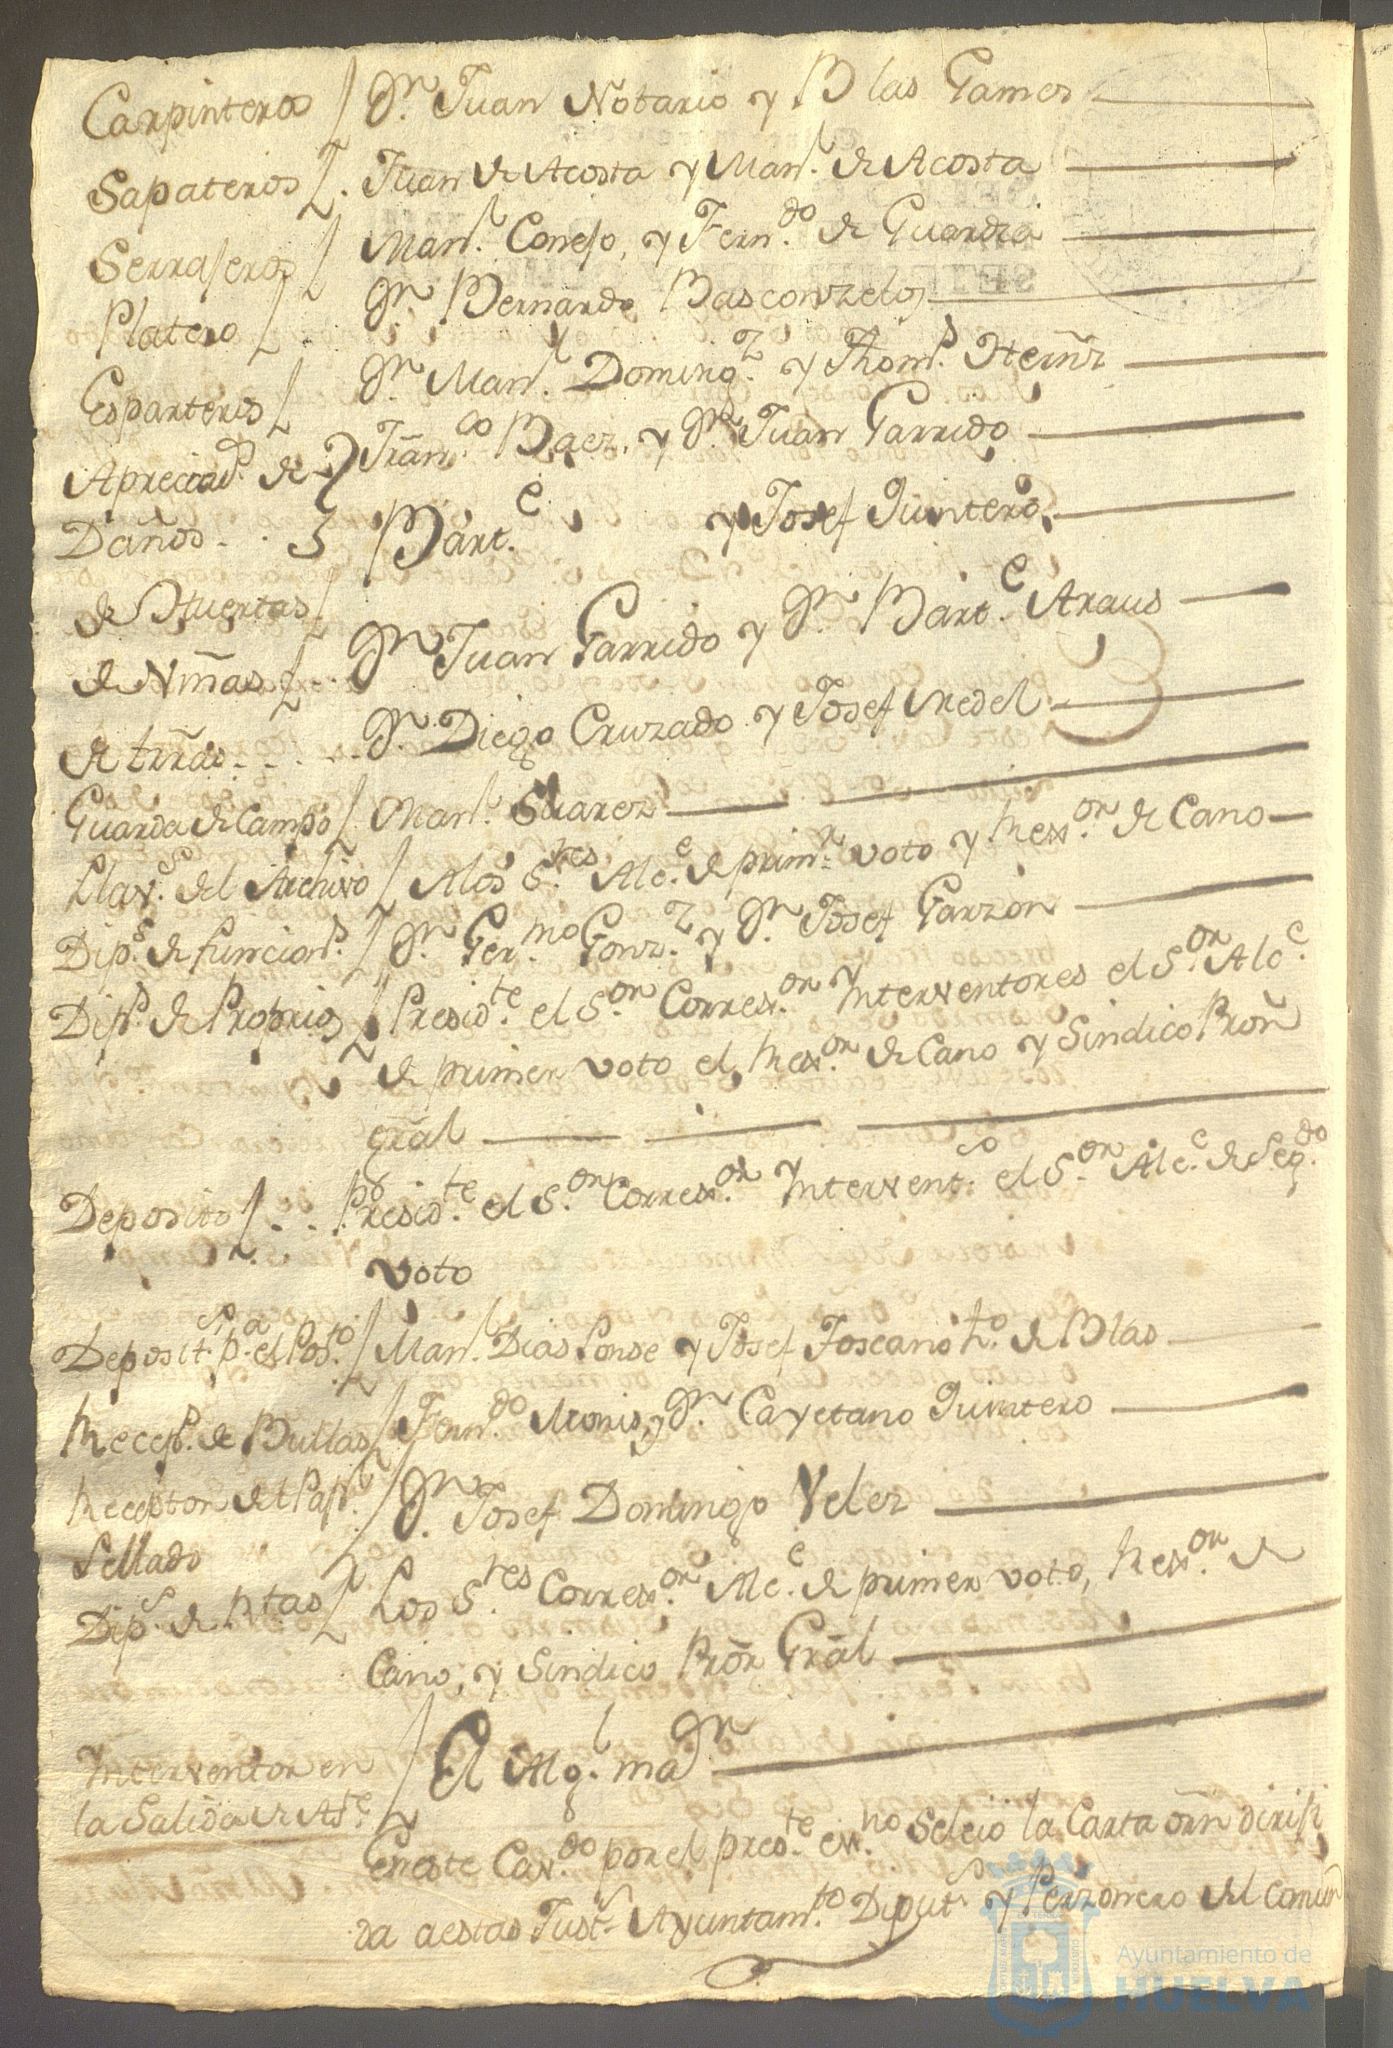 Carpinteros / Dn. Juan Notario y Blas Games
Sapateros / Juan de Acosta y Manl. de Acosta
Serrajeros / Manl. Conejo, y Ferndo. de Guardia
Platero / Dn. Bernardo Basconzelos
Esparteros / Dn. Manl. Domingz. y Thoms. Hernz
Apreciads. de Franco. Baez, y Dn. Juan Garrido
Daños Barte. y Josef Quintero
de Huertas
de Viñas / Dn. Juan Garrido y Dn. Barte. Araus
de trras Dn. Diego Cruzado y Josef Vedel
Guarda de Campo / Manl. Suarez
Llavs. del Archivo / A los Sres. Alce. de primr. voto y Rexor. de Cano
Dips. de funcions. / Dn. Germo. Gonz. y Dn. Josef Garzon
Dips. de Proprios / Presidte. el Sor. Correxor. Ynterventores el Sor. Alce.
de primer voto el Rexor. de Cano y Sindico Pror
gral
Deposito / Presidte. el Sor. Correxor. Ynterventor. el Sor. Alce. de Segdo.
voto
Deposits. pa. el Posto. / Manl. Dias Ponse y Josef Toscano ho. de Blas
Receps. de Bullas / Ferndo. Monis, y Dn. Cayetano Quintero
Receptor del Papl. / Dn. Josef Domingo Velez
Sellado
Dips. de Rtas / Los Sres. Correxor. Alce. de primer voto, Rexor. de
Cano, y Sindico Pror Gral
Ynterventor en / El Algl. mar
la Salida de Ade.
En este Cavdo. por el preste. exno. se leio la Carta orn diriji
da a estas Just. Ayuntamto. Diputs. y Perzonero del comun
Ayuntamiento de
HUELVA